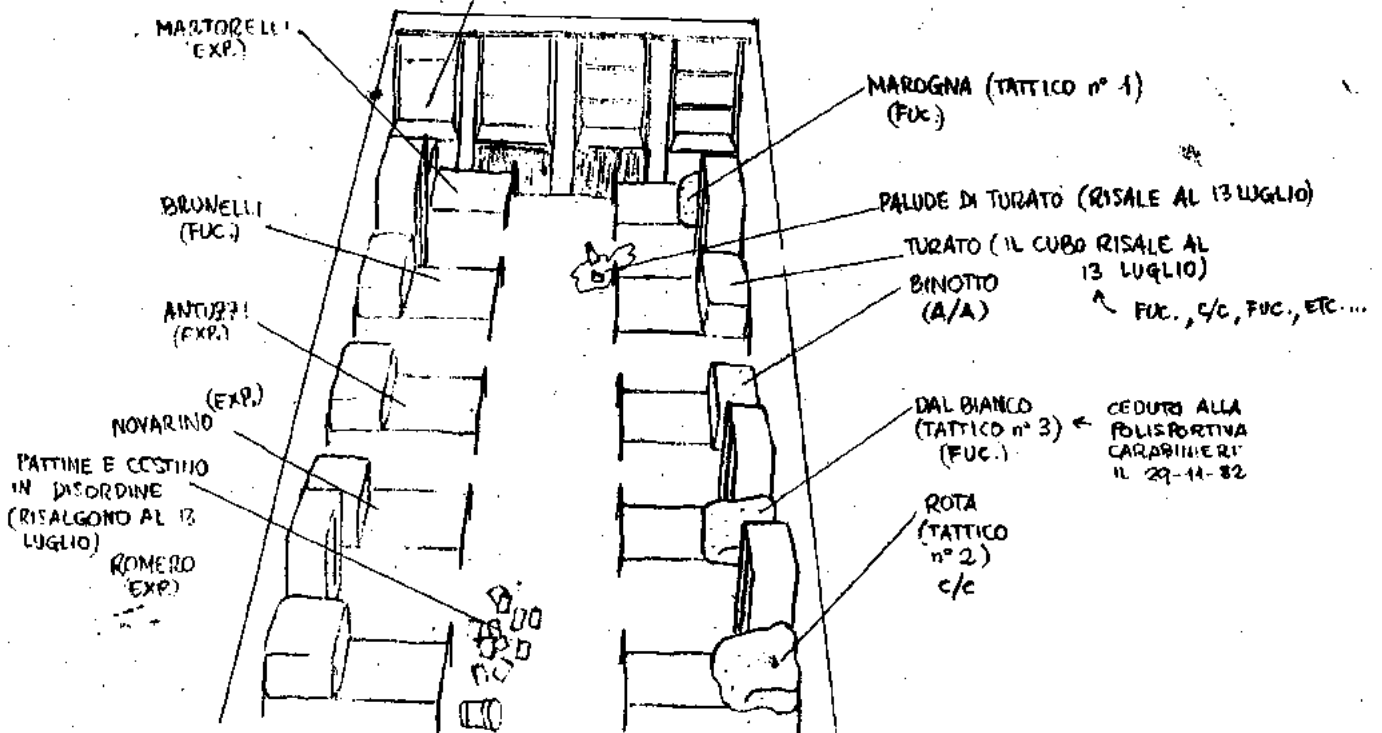 MARTORELLI
(EXP.)
BRUNELLI
(FUC.)
ANTUZZI
(EXP.)
(EXP.)
NOVARINO
PATTINE E CESTINO
IN DISORDINE
(RISALGONO AL 13
LUGLIO)
ROMERO
(EXP.)
MAROGNA (TATTICO n° 1)
(FUC.)
PALUDE DI TURATO (RISALE AL 13 LUGLIO)
TURATO (IL CUBO RISALE AL
13 LUGLIO)
FUC., C/C, FUC., ETC....
BINOTTO
(A/A)
DAL BIANCO
(TATTICO n° 3)
(FUC.)
CEDUTO ALLA
POLISPORTIVA
CARABINIERI
IL 29-11-82
ROTA
(TATTICO
n° 2)
C/C